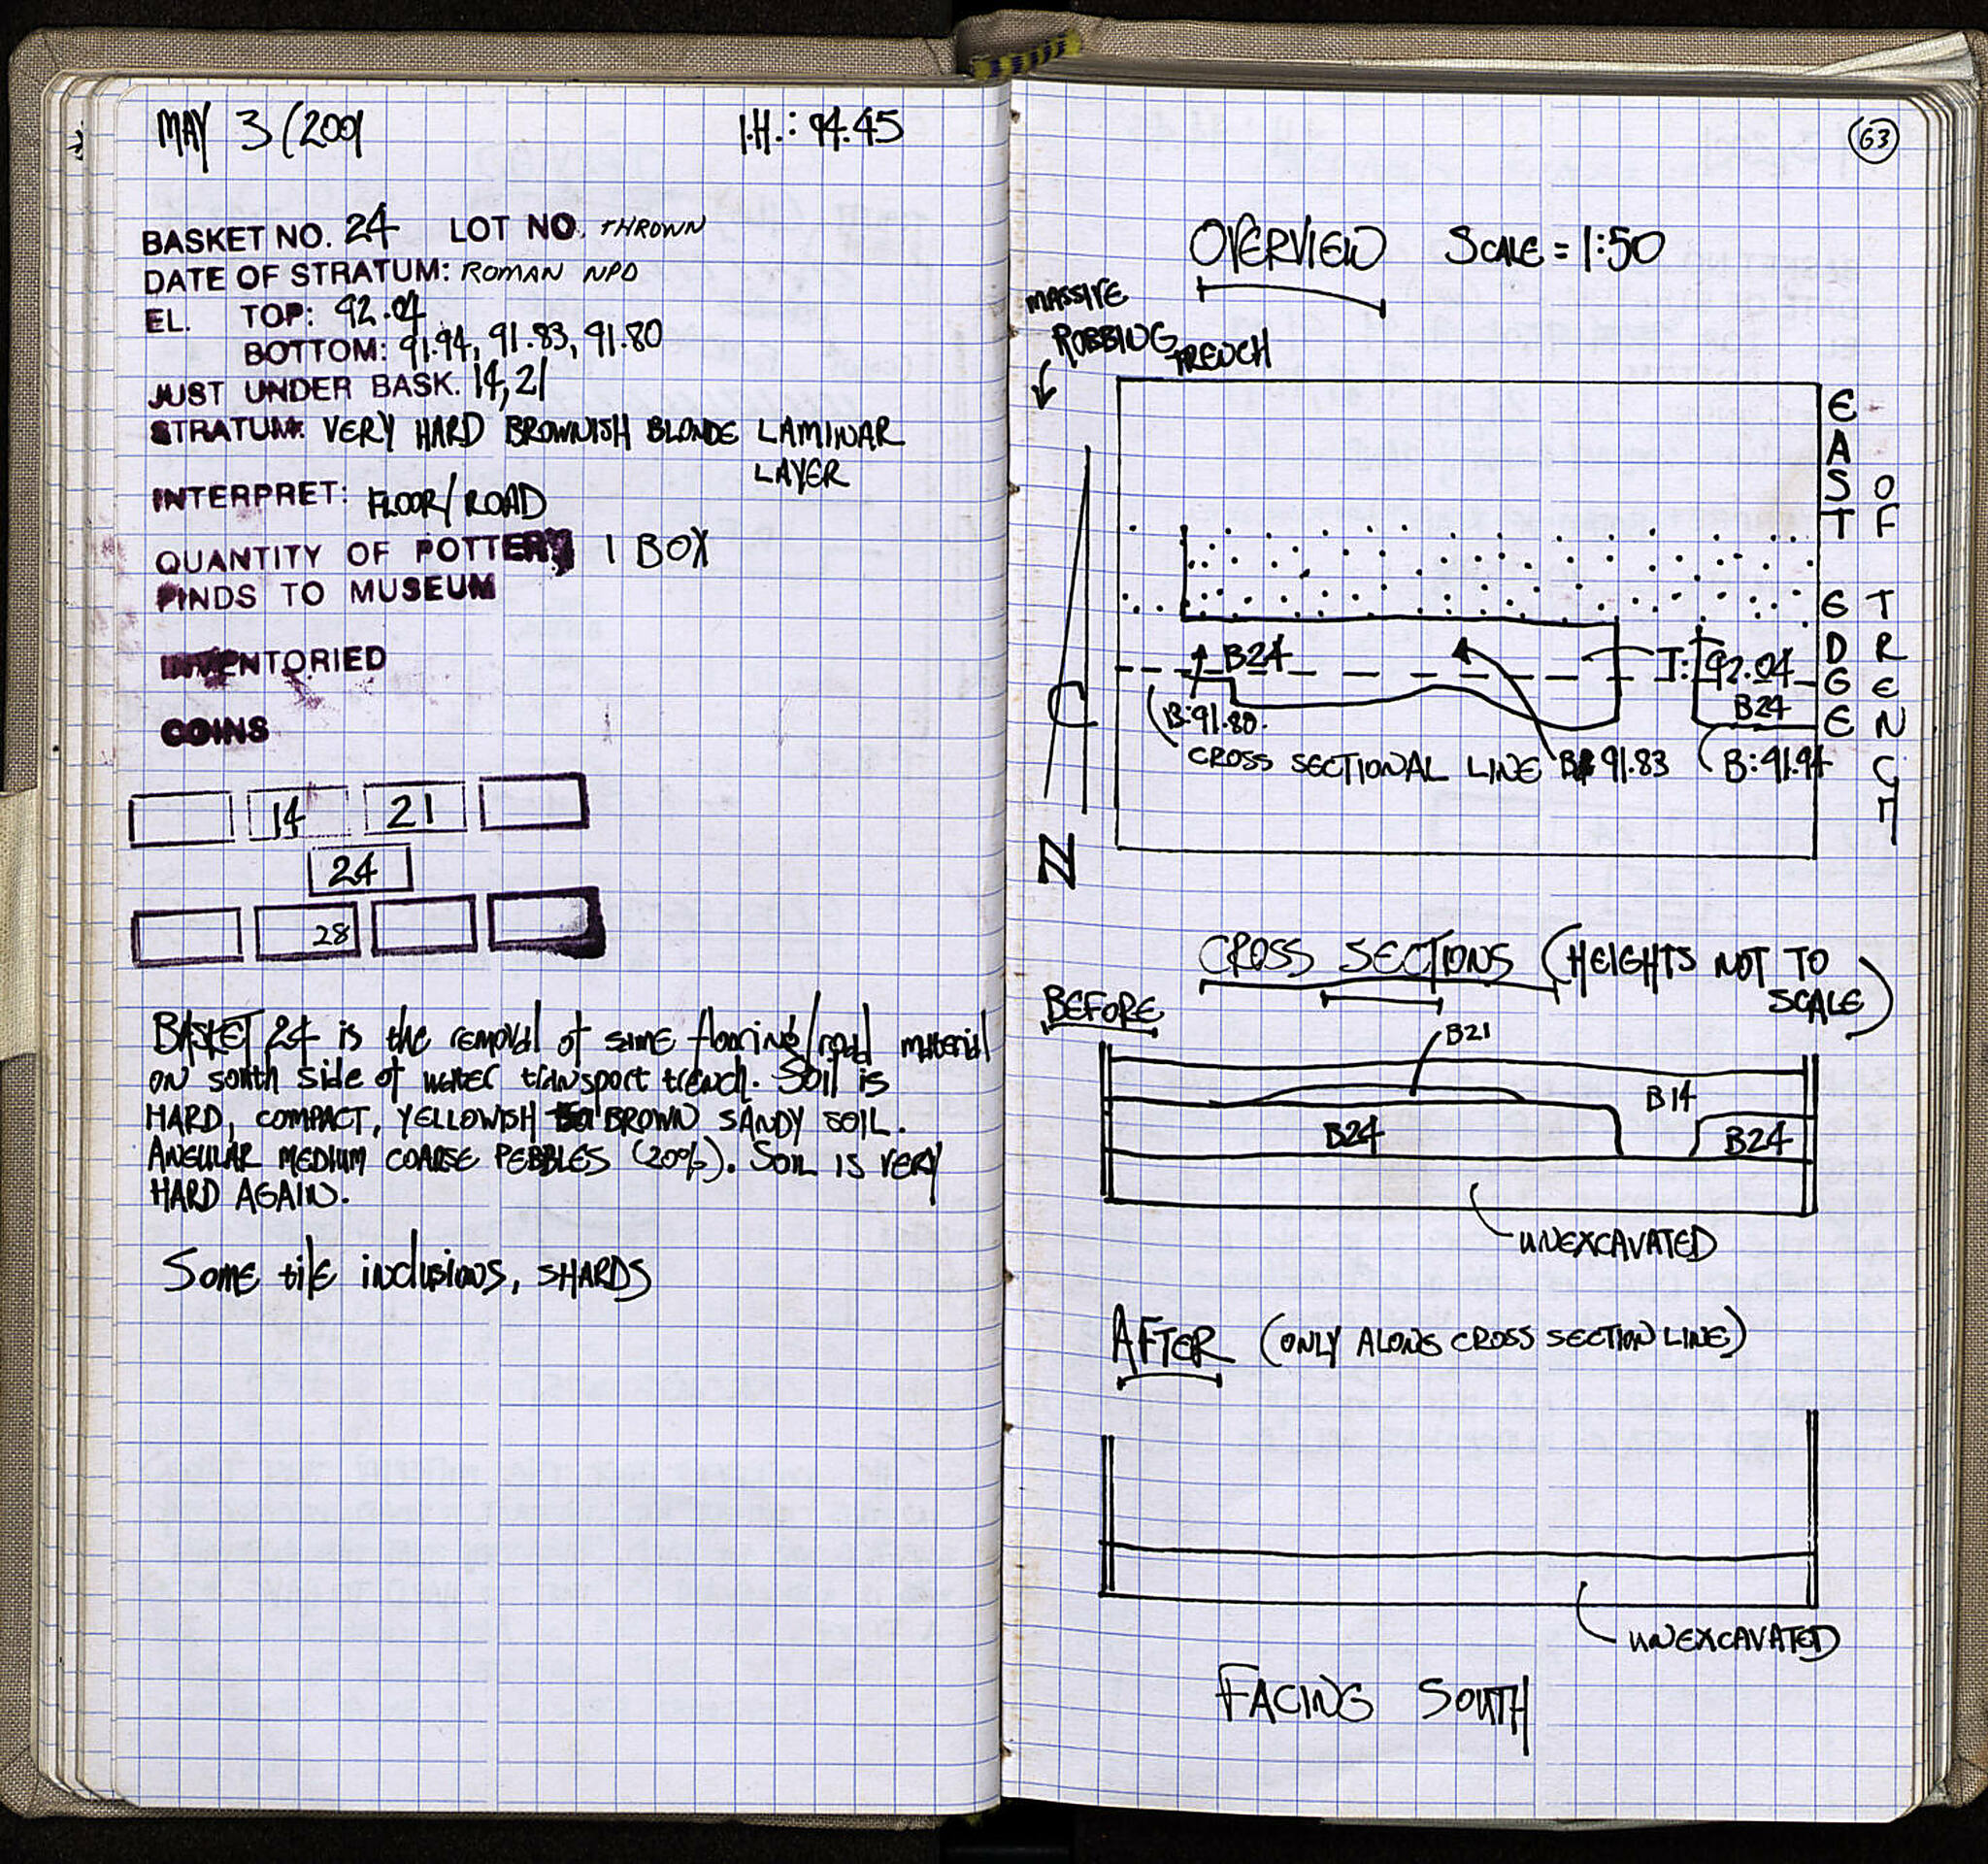 MAY 3/2001 I.H.: 94.45
BASKET NO. 24 LOT NO. THROWN
DATE OF STRATUM: ROMAN NPD
EL. TOP: 92.04
BOTTOM: 91.94, 91.83, 91.80
JUST UNDER BASK. 14, 21
STRATUM: VERY HARD BROWNISH BLONDE LAMINAR
LAYER
INTERPRET: FLOOR/ROAD
QUANTITY OF POTTERY 1 BOX
FINDS TO MUSEUM
INVENTORIED
COINS
14 21
24
28
BASKET 24 is the removal of some flooring/road material
on south side of water transport trench. Soil is
HARD, COMPACT, YELLOWISH BROWN SANDY SOIL.
ANGULAR MEDIUM COARSE PEBBLES (20%). SOIL IS VERY
HARD AGAIN.
Some tile inclusions, SHARDS
63
OVERVIEW SCALE = 1:50
MASSIVE
ROBBING TRENCH
EAST EDGE
OF TRENCH
B24
T: 92.04
B24
B: 91.80
CROSS SECTIONAL LINE B: 91.83 B: 91.94
N
CROSS SECTIONS (HEIGHTS NOT TO
SCALE)
BEFORE
B21
B14
B24 B24
UNEXCAVATED
AFTER (ONLY ALONG CROSS SECTION LINE)
UNEXCAVATED
FACING SOUTH